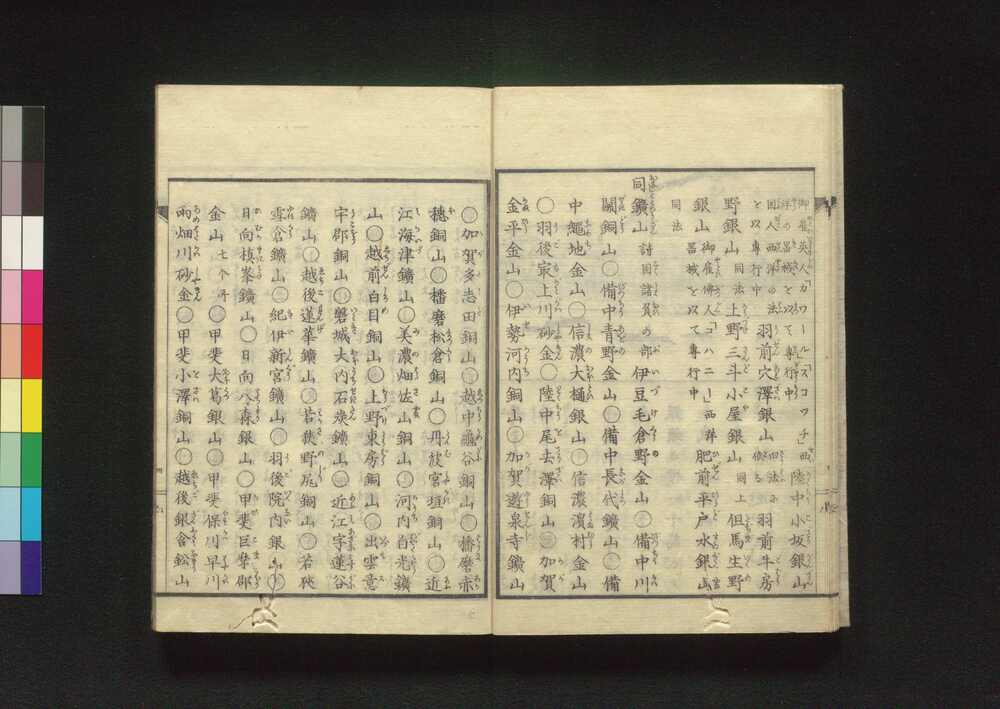 御雇英人ガワールスコツチ西 陸中小坂銀山
洋の器械を以て専行中
同人西洋の法 羽前穴澤銀山 同法 羽前牛房
を以専行中
野銀山 同法 上野三斗小屋銀山 同上 但馬生野
銀山 御雇佛人コハニー西洋 肥前平戸水銀山
器械を以て専行中 同法
同鑛山 諸国諸質の部 伊豆毛倉野金山〇備中川
關銅山〇備中青野金山〇備中長代鑛山〇備
中繩地金山〇信濃大樋銀山〇信濃濵村金山
〇羽後冣上川砂金〇陸中尾去澤銅山〇加賀
金平金山〇伊勢河内銅山〇加賀遊泉寺鑛山
〇加賀多志田銅山〇越中龜谷銅山〇播磨赤
穗銅山〇播磨松倉銅山〇丹波宮垣銅山〇近
江海津鑛山〇美濃畑佐山銅山〇河内白光鑛
山〇越前白目銅山〇上野東房銅山〇出雲意
宇郡銅山〇磐城大内石炭鑛山〇近江字蓮谷
鑛山〇越後蓮華鑛山〇若狭野尻銅山〇若狹
雲倉鑛山〇紀伊新宮鑛山〇羽後院内銀山〇
日向槙峯鑛山〇日向八森銀山〇甲斐巨摩郡
金山七个所〇甲斐大葛銀山〇甲斐保川早川
雨畑川砂金〇甲斐小澤銅山〇越後銀含鉛山